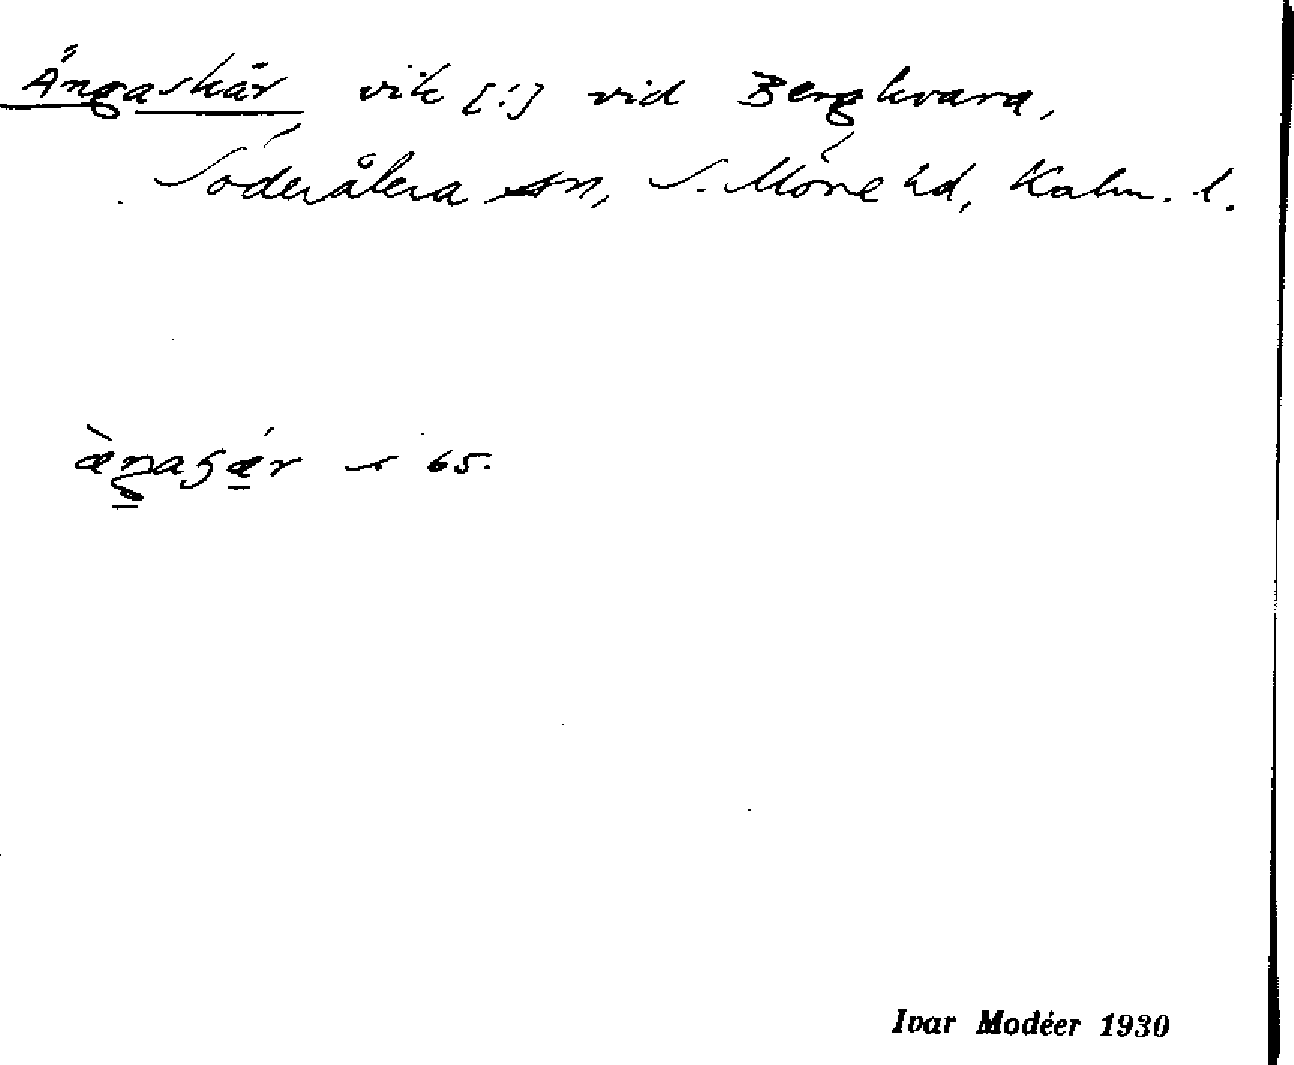 Ängaskär vik [!] vid Bergkvara,
Söderåkra sn, S. Möre hd, Kalm. l.
65.
Ivar Modéer 1930